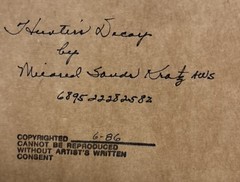 Hunter's Decoy
by
Mildred Sands Kratz AWS
689522282582
COPYRIGHTED 6-86
CANNOT BE REPRODUCED
WITHOUT ARTIST'S WRITTEN
CONSENT